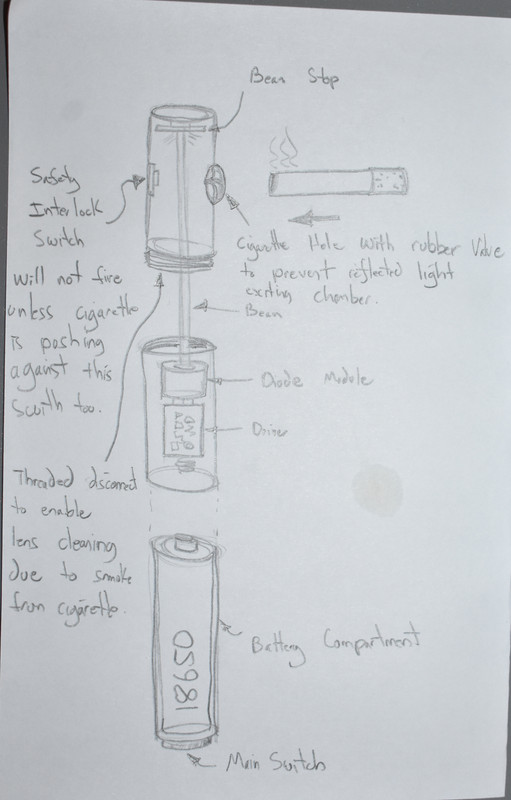 Beam Stop
Safety
Interlock
Switch
will not fire
unless cigarette
is pushing
against this
swith too.
Cigarette Hole with rubber Valve
to prevent reflected light
exiting chamber.
Beam
Diode Module
Driver
Threaded disconnect
to enable
lens cleaning
due to smoke
from cigarette.
Battery Compartment
18650
Main Switch